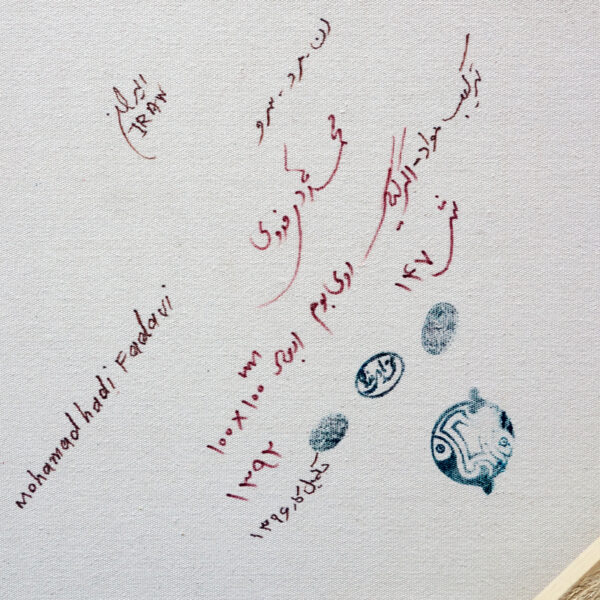 ایران
IRAN
زن - مرد - سرو
محمد هادی فدوی
ترکیب مواد - اکرلیک
روی بوم
ش ۱۴۷
ابعاد
۱۰۰ X ۱۰۰
۱۳۹۲
تکمیل کار ۱۳۹۶
Mohamad hadi Fadavi